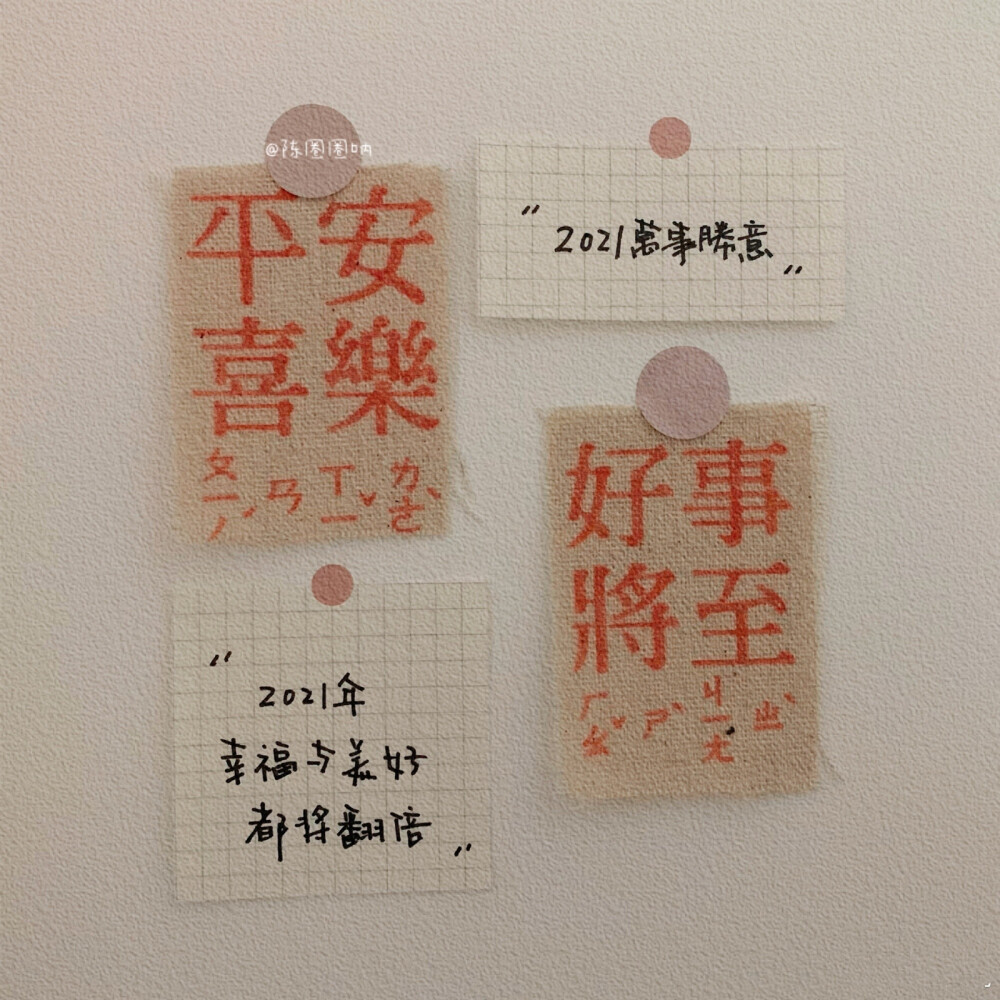 @陈圈圈呐
平安
喜樂
ㄆㄧㄥˊ ㄢ ㄒㄧˇ ㄌㄜˋ
"2021萬事勝意"
好事
將至
ㄏㄠˇ ㄕˋ ㄐㄧㄤ ㄓˋ
"2021年
幸福与美好
都将翻倍"